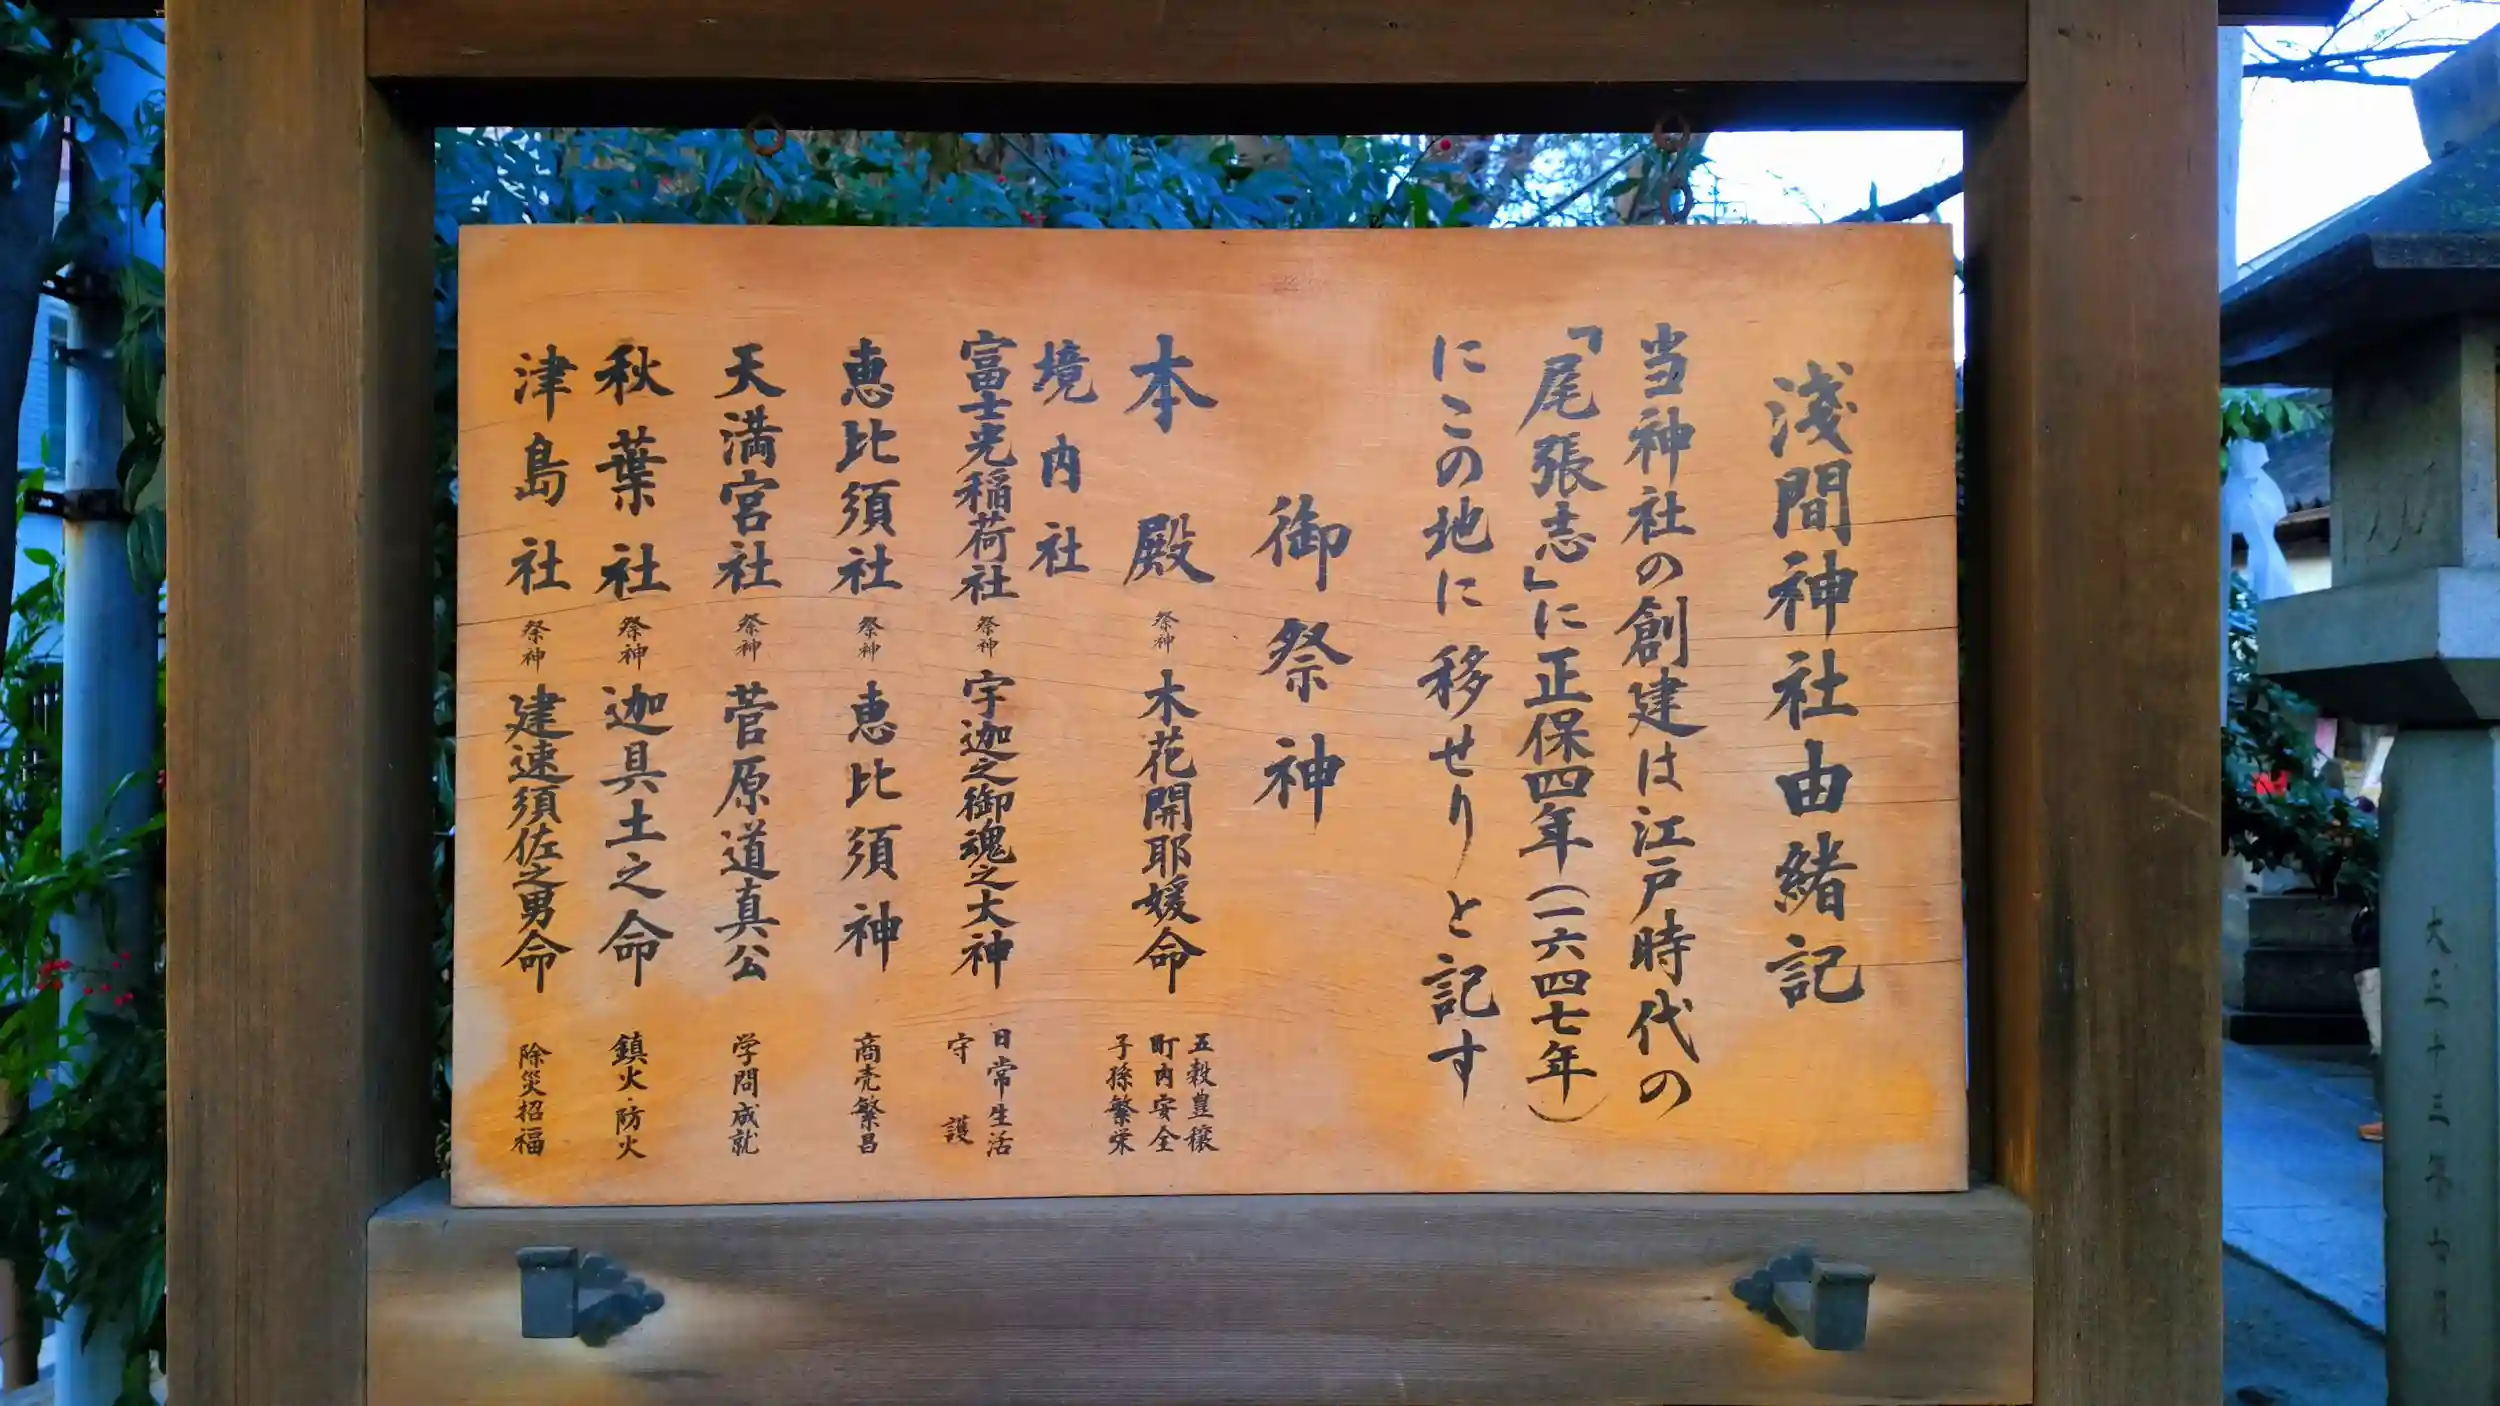 浅間神社由緒記
当神社の創建は江戸時代の
「尾張志」に正保四年(一六四七年)
にこの地に移せりと記す
御祭神
本殿 祭神 木花開耶媛命 五穀豊穣 町内安全 子孫繁栄
境内社
富士光稲荷社 祭神 宇迦之御魂之大神 日常生活 守護
恵比須社 祭神 恵比須神 商売繁昌
天満宮社 祭神 菅原道真公 学問成就
秋葉社 祭神 迦具土之命 鎮火・防火
津島社 祭神 建速須佐之男命 除災招福
大正十三年七月